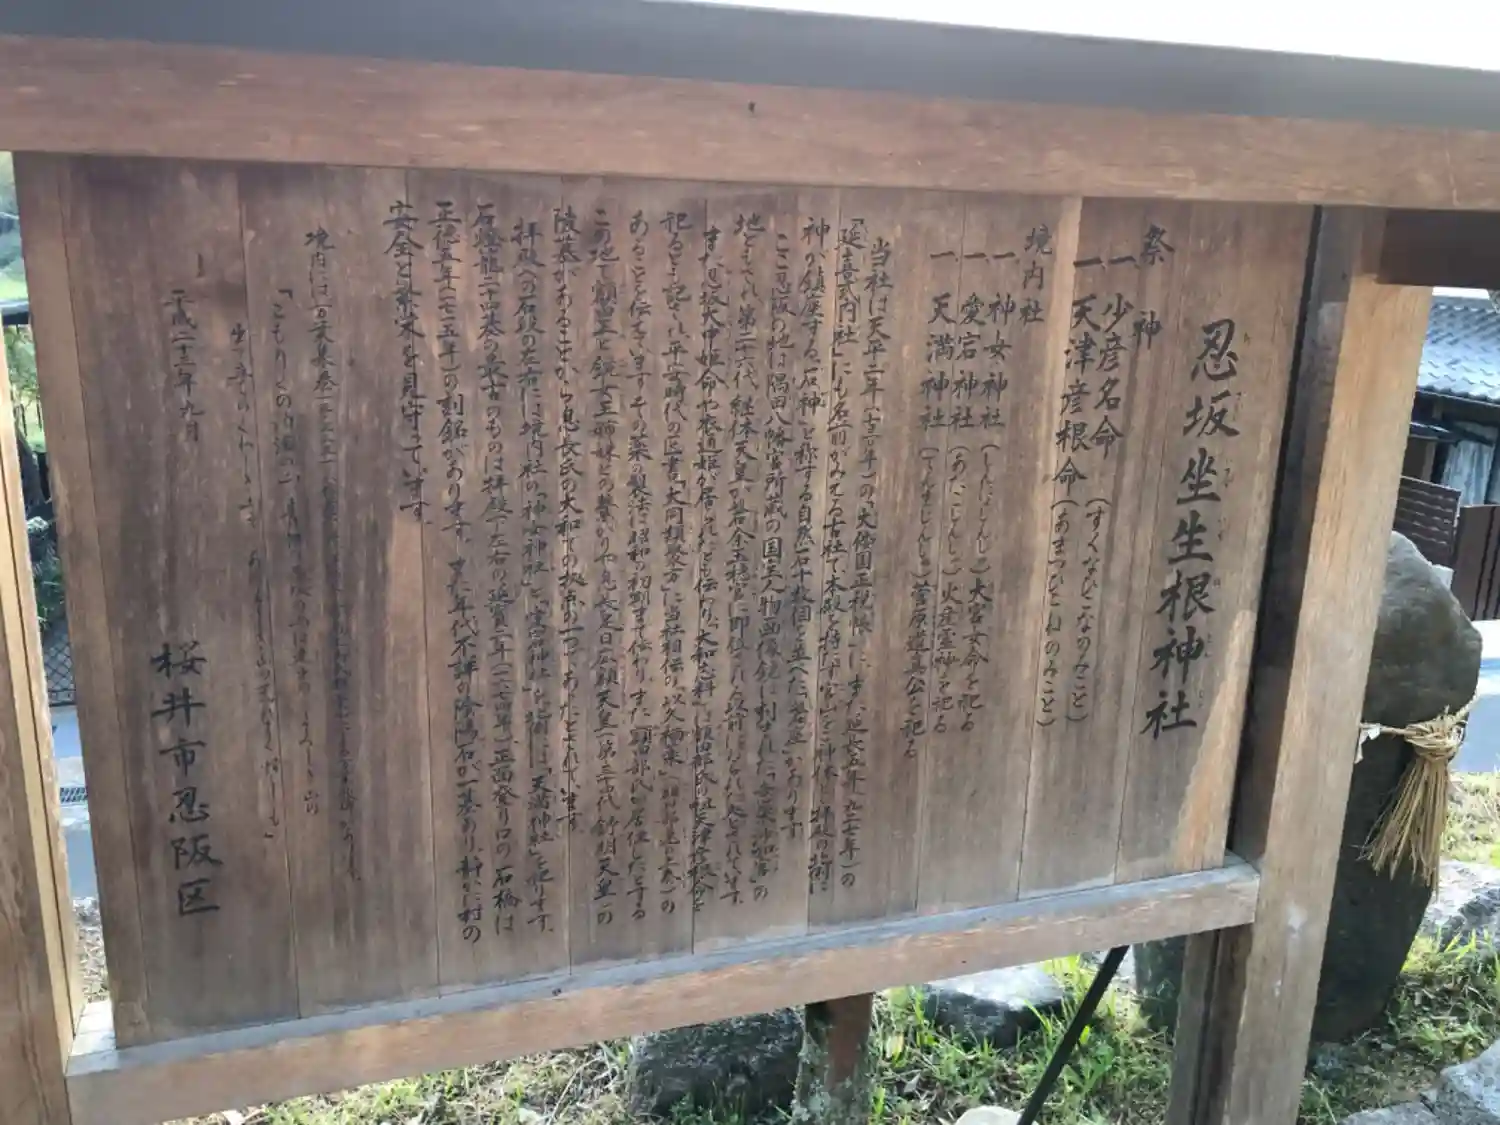 忍坂坐生根神社
祭神
一 少彦名命（すくなひこなのみこと）
一 天津彦根命（あまつひこねのみこと）
境内社
一 神女神社（しんにょじんじゃ）大宮女命を祀る
一 愛宕神社（あたごじんじゃ）火産霊神を祀る
一 天満神社（てんまじんじゃ）菅原道真公を祀る
当社は天平二年（七三〇年）の「大倭国正税帳」に、また延長五年（九二七年）の
「延喜式内社」にも名前がみえる古社で本殿を持たず宮山を神体とし拝殿の北側に
神が鎮座する「石神」と称する自然石十数個を並べた「岩座」があります。
ここ忍坂の地は隅田八幡宮所蔵の国宝「人物画像鏡」に刻まれた「意柴沙加宮」の
地ともされ、第二十六代継体天皇が磐余玉穂宮に即位される以前におられた処とされています。
また忍坂大中姫命や衣通姫が居られたとも伝わり、「大和志料」は額田部氏の祖天津彦根命を
祀ると記され平安時代の医書「大同類聚方」に当社相伝の「以久禰薬」（額田部連之奏）の
あることを伝えていますその薬の製法は昭和の初期まで伝わり、また額田部氏が居住したとする
この地で額田王と鏡女王姉妹との繋がりや息長足日広額天皇（第三十四代舒明天皇）の
陵墓があることから息長氏の大和での拠点の一つであったとされています。
拝殿への石段の左右には境内社の「神女神社」と「愛宕神社」を北側には「天満神社」を祀ります。
石燈籠二十四基の最古のものは拝殿下左右の延宝二年（一六七四年）正面登り口の石橋は
正徳五年（一七一五年）の刻銘があります。また年代不詳の陰陽石が一基あり、静かに村の
安全と繁栄を見守っています。
境内には万葉集巻
「こもりくの泊瀬の山
平成二十三年九月
桜井市忍阪区